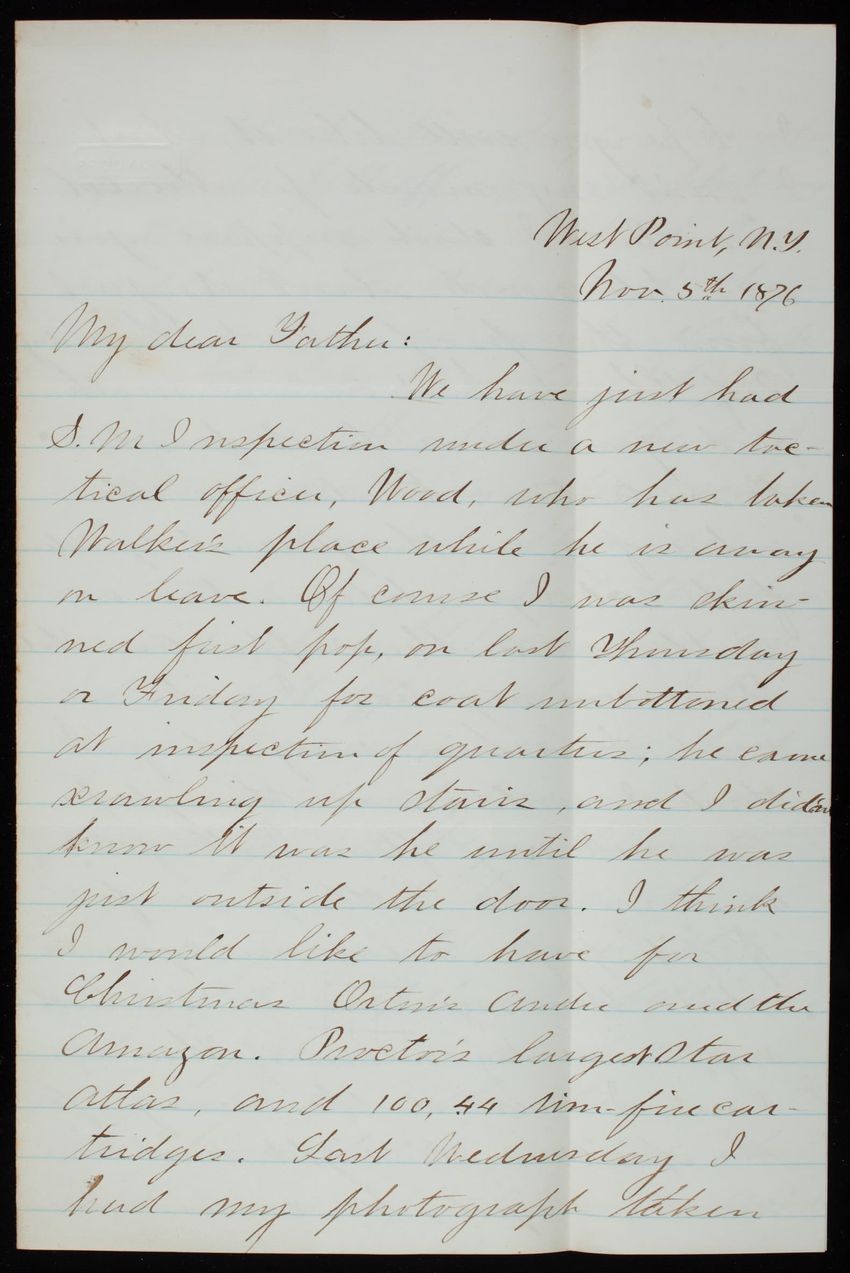 West Point, N.Y.
Nov. 5th 1876
My dear Father:
We have just had
S.M Inspection under a new tac-
tical officer, Wood, who has taken
Walker's place while he is away
on leave. Of course I was skin-
ned first pop, on last Thursday
or Friday for coat unbottoned
at inspection of quarters; he came
scrawling up stairs, and I didn't
know it was he until he was
just outside the door. I think
I would like to have for
Christmas Orton's Andes and the
Amazon. Proctor's largest Star
Atlas, and 100, 44 rim-fire car-
tridges. Last Wednesday I
had my photograph taken